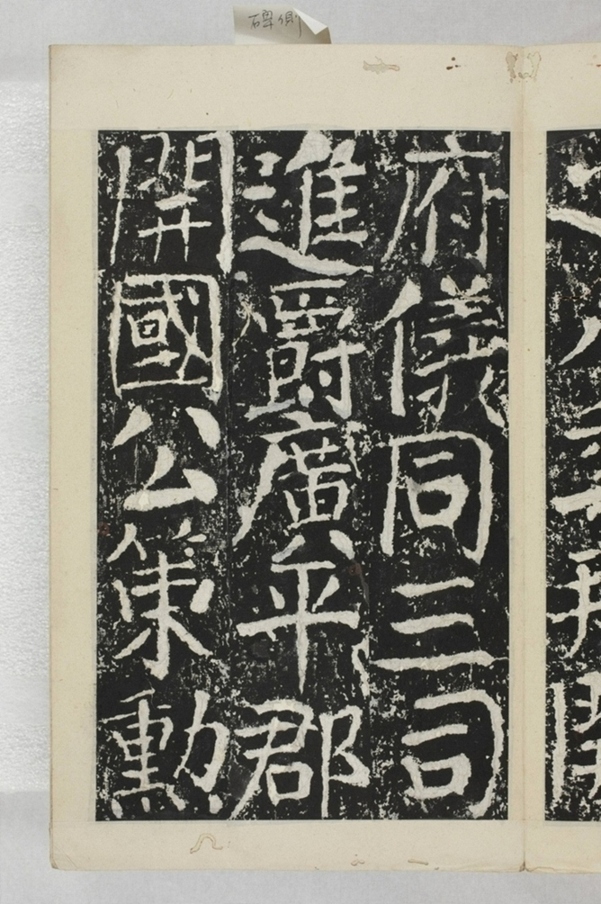 碑側
府儀同三司
進爵廣平郡
開國公策勳